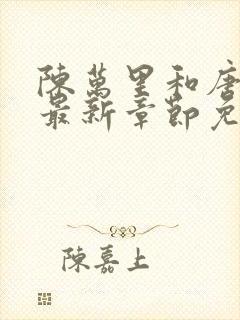 陳萬里和唐
最新章節免
陳嘉上